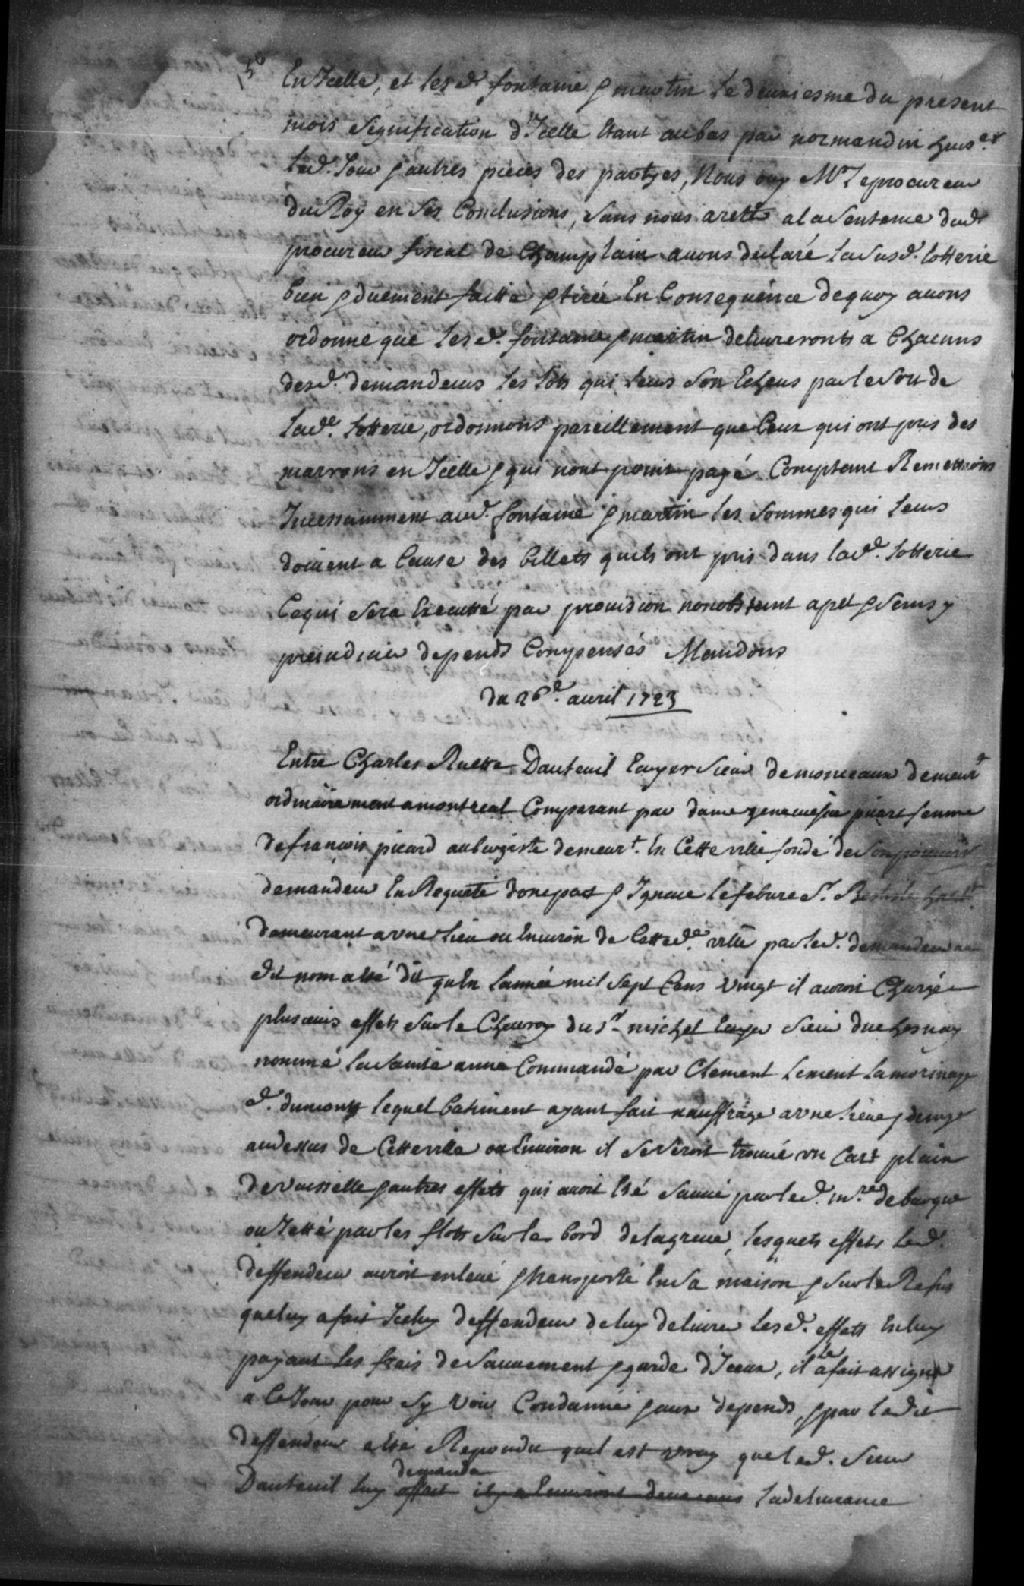 En Icelle, et les d. fontaine & martin le deuxiesme du present
mois signification d'Icelle Etant au bas par normandin huis.er
led. Jour & autres pieces des partyes, Nous ouy Mr Le procureur
du Roy en ses Conclusions, sans nous areter a la sentence dud.
procureur fiscal de Champlain avons declaré la susd. lotterie
bien & duement faitte & tirée En Consequence de quoy avons
ordonné que les d. fontaine & martin delivreronts a Chacuns
desd. demandeurs les lots qui leurs son Echeus par le sort de
lad.e lotterie, ordonnons pareillement que Ceux qui ont pris des
marrons en Icelle & qui nont point payé Comptant Remettrons
Incessamment aud. fontaine & martin les sommes qui leurs
doivent a Cause des billets quils ont pris dans lad.e lotterie
Ce qui sera Executté par provision nonobstant apel & sans y
prejudicier depends Compensés Mandons
du 26e. avril 1723
Entre Charles Ruette Dauteuil Ecuyer Sieur de monceaux demeurt
ordinairement a montreal Comparant par dame genevieve picart femme
de francois picard aubergiste demeurt. En Cette ville fondé de son pouvoir
demandeur En Requeste donepat & Ignace lefebvre Sr.
demeurant a une lieu ou Environ de Cette d.e ville par led. demandeur au
dit nom a été dit qu'En lannée mil sept Cens vingt il auroit Chargé
plusieurs effets sur le Chevroy du Sr. michel Ecuyer Sieur duchesnay
nommé la sainte anne Commandé par Clement
d. dumonts lequel batiment ayant fait nauffrage a une lieue & demye
au dessus de Cette ville ou Environ il se seroit trouvé un Cart plain
de vaisselle & autres effets qui avoit Eté sauvé par led. m.re de barque
ou Jetté par les flots sur le bord de la greve, lesquels effets led.
deffendeur auroit enlevé & transporté En sa maison & sur le Refus
que luy a fait Iceluy deffendeur de luy delivrer lesd. effets En luy
payant les frais de sauvement & garde d'Iceux, il la fait assigner
a Ce Jour pour sy voir Condamné & aux depends, & par le dit
deffendeur a Eté Repondu quil est vray que led. Sieur
Dauteuil luy demanda affait il y a Environt deux mois la delivrance